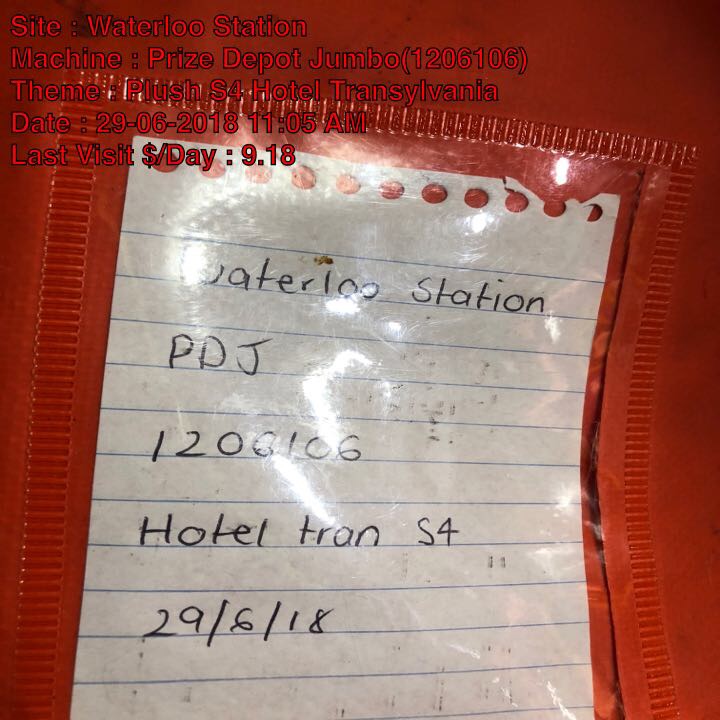 Site : Waterloo Station
Machine : Prize Depot Jumbo(1206106)
Theme : Plush S4 Hotel Transylvania
Date : 29-06-2018 11:05 AM
Last Visit $/Day : 9.18
Waterloo Station
PDJ
1206106
Hotel tran S4
29/6/18